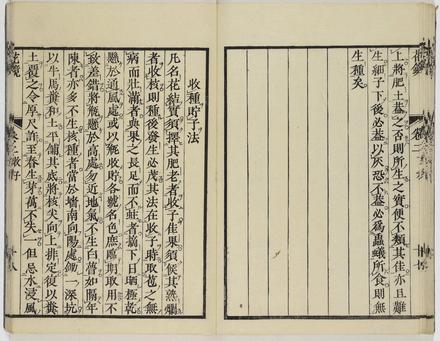 上將肥土蓋之否則所生之實便不類其佳亦且難
生細子下後必蓋以灰恐不蓋必爲蟲蟻所食則無
生種矣
收種貯子法
凡名花結實須擇其肥老者收子佳果須候其熟爛
者收核則種必發生必茂其法在收子時取苞之無
病而壯滿者與果之長足而不蛀者摘下日晒極乾
懸於通風處或以瓶收貯各號名色庶臨期取用不
致差錯將瓶懸於高處勿近地氣不生白瞢如隔年
陳者亦多不生核種者當於墻南向陽處鋤一深坑
以牛馬糞和土平鋪其底將核尖向上排定復以糞
土覆之令厚尺許至春生芽萬不失一但忌水浸風
花鏡
卷二